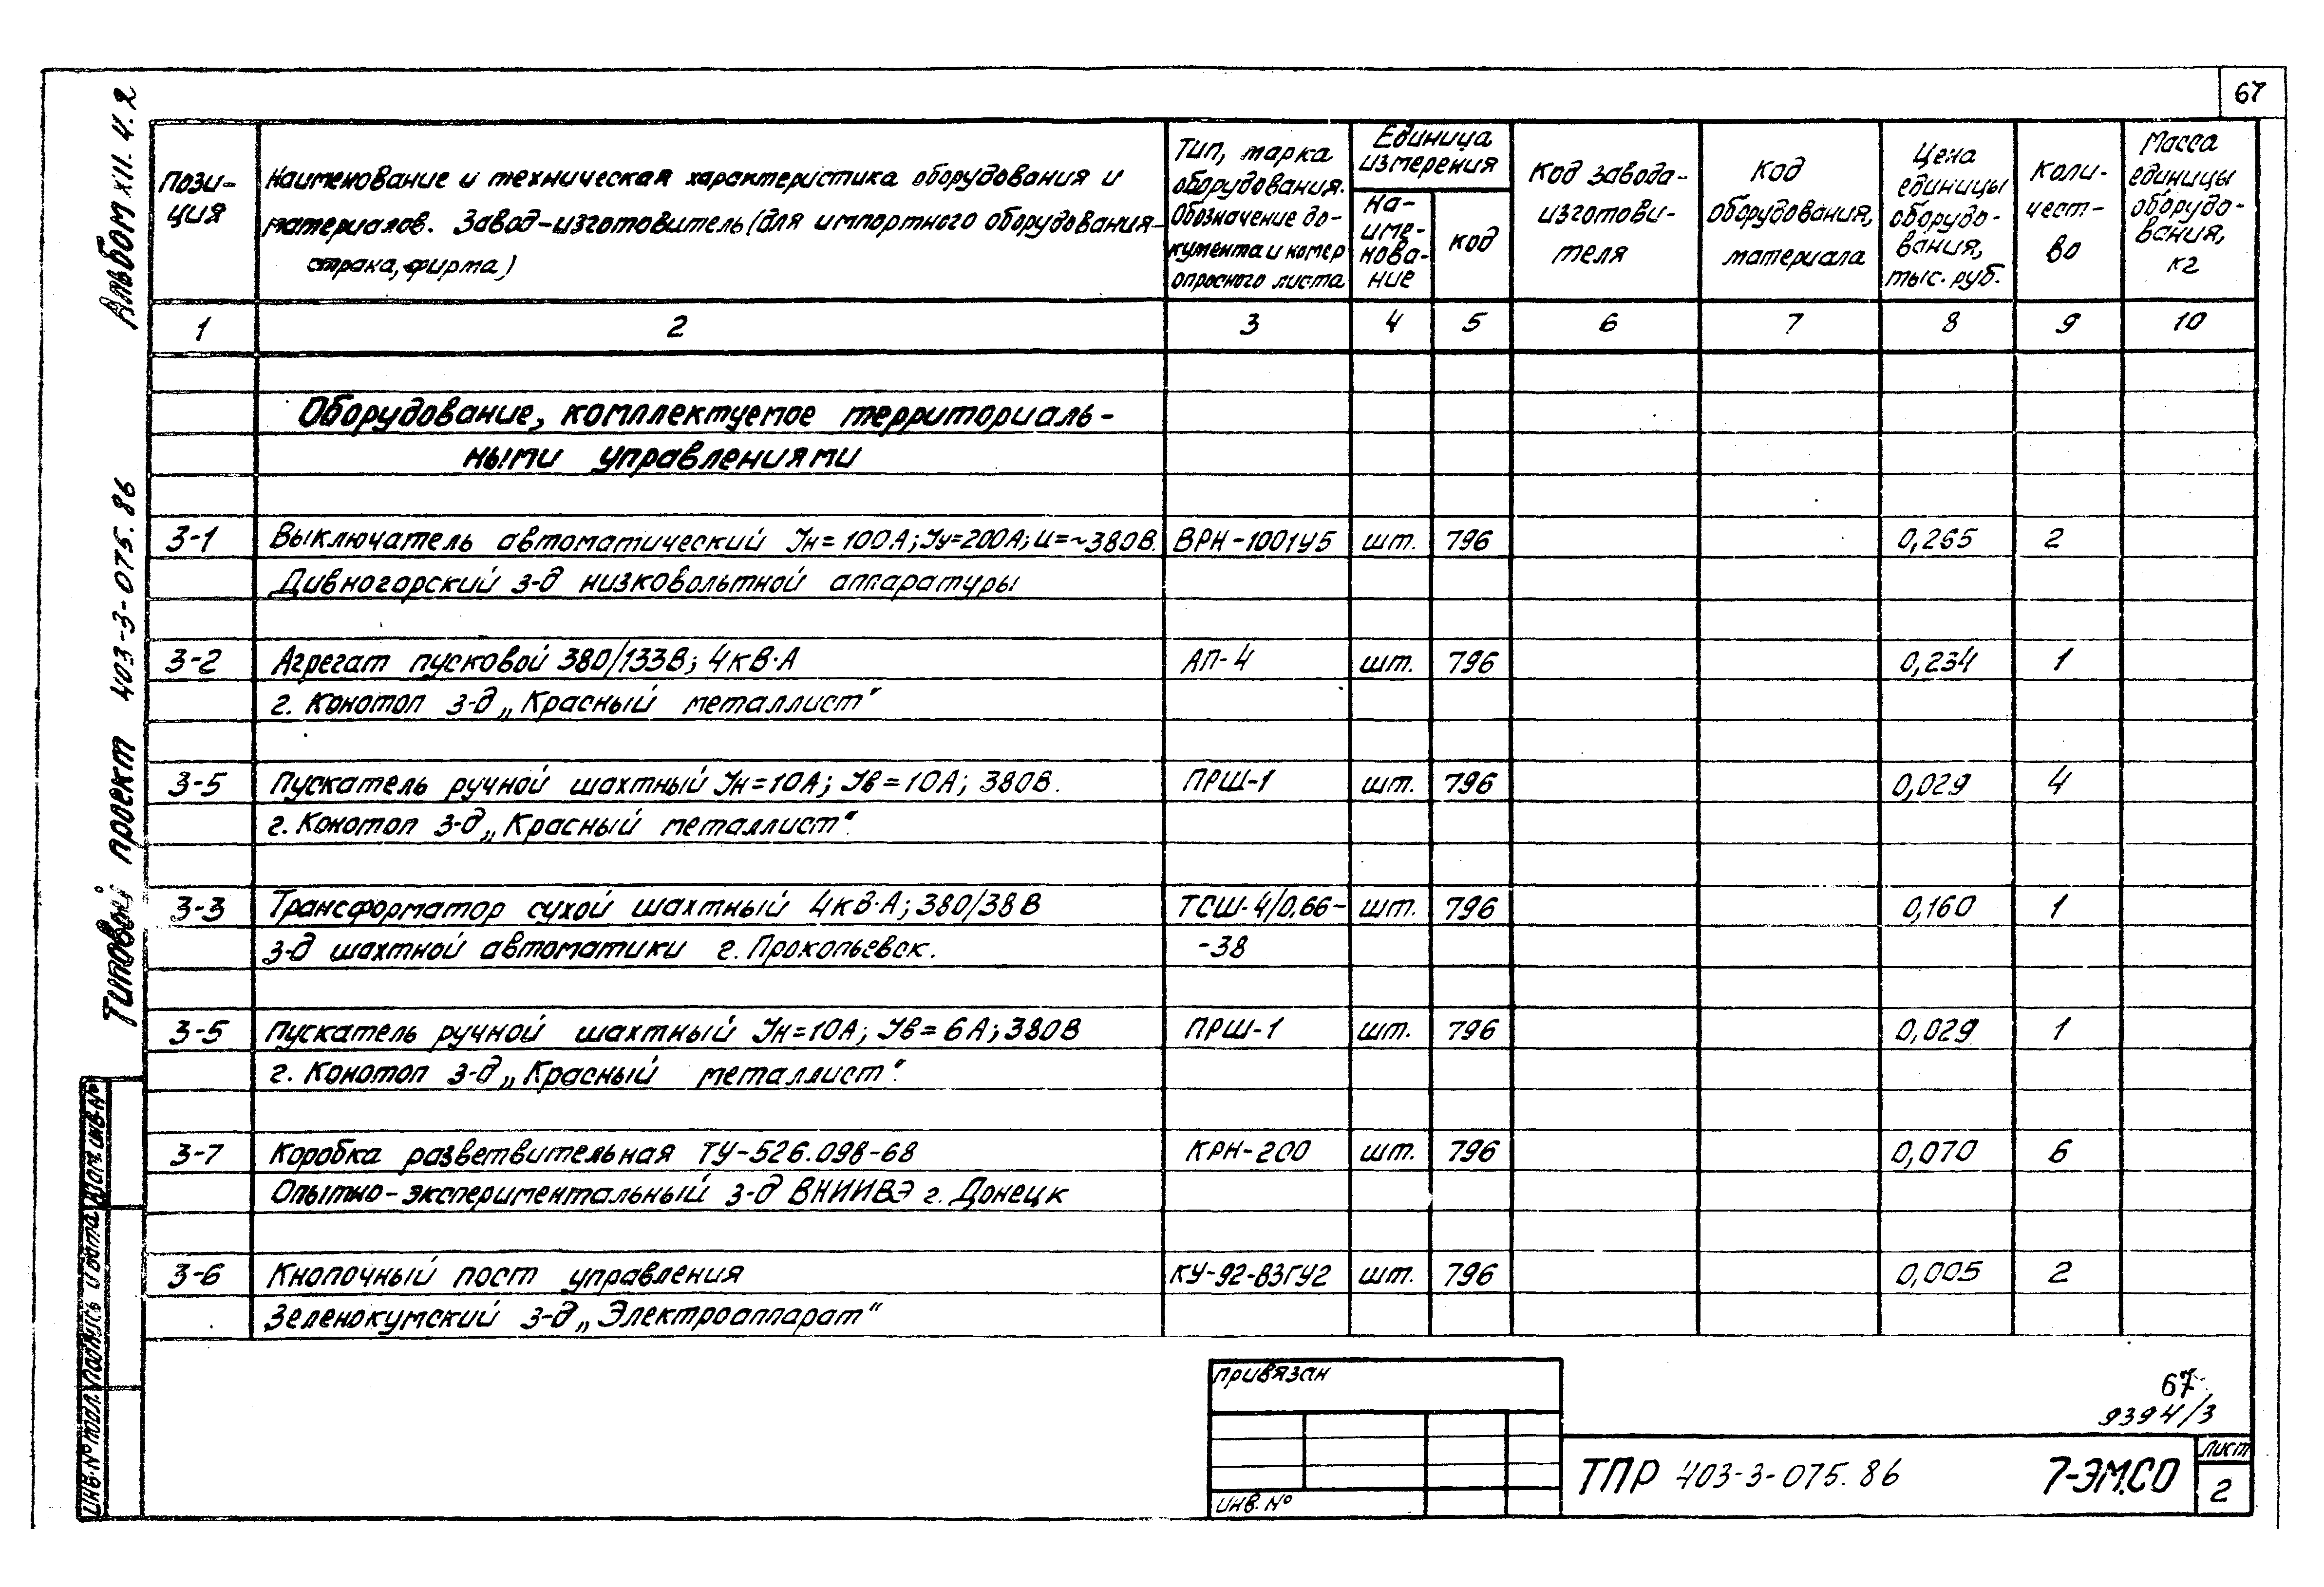 67
Альбом XII. Ч. 2
Типовой проект 403-3-075.86
Пози-
ция
Наименование и техническая характеристика оборудования и
материалов. Завод-изготовитель (для импортного оборудования-
страна, фирма)
Тип, марка
оборудования.
Обозначение до-
кумента и номер
опросного листа
Единица
измерения
На-
име-
нова-
ние
код
Код завода-
изготови-
теля
Код
оборудования,
материала
Цена
единицы
оборудо-
вания,
тыс. руб.
Коли-
чест-
во
Масса
единицы
оборудо-
вания,
кг
1 2 3 4 5 6 7 8 9 10
Оборудование, комплектуемое территориаль-
ными управлениями
3-1 Выключатель автоматический Iн=100А; Iу=200А; U=~380В. ВРН-1001У5 шт. 796 0,265 2
Дивногорский з-д низковольтной аппаратуры
3-2 Агрегат пусковой 380/133В; 4кВ·А АП-4 шт. 796 0,234 1
г. Конотоп з-д „Красный металлист"
3-5 Пускатель ручной шахтный Iн=10А; Iв=10А; 380В. ПРШ-1 шт. 796 0,029 4
г. Конотоп з-д „Красный металлист".
3-3 Трансформатор сухой шахтный 4кВ·А; 380/38В ТСШ-4/0,66- шт. 796 0,160 1
з-д шахтной автоматики г. Прокопьевск. -38
3-5 Пускатель ручной шахтный Iн=10А; Iв=6А; 380В ПРШ-1 шт. 796 0,029 1
г. Конотоп з-д „Красный металлист".
3-7 Коробка разветвительная ТУ-526.098-68 КРН-200 шт. 796 0,070 6
Опытно-экспериментальный з-д ВНИИВЭ г. Донецк
3-6 Кнопочный пост управления КУ-92-ВЗГУ2 шт. 796 0,005 2
Зеленокумский з-д „Электроаппарат"
Инв. № подл. Подпись и дата Взам. инв. №
Привязан
Инв. №
67
9394/3
ТПР 403-3-075.86 7-ЭМ.СО
Лист
2